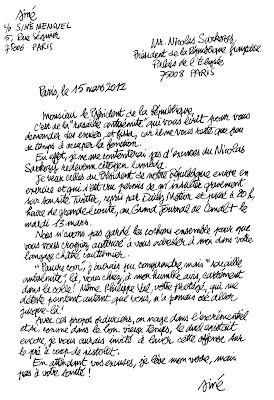 siné
c/o SINÉ MENSUEL
5, Rue Séguier
75006 PARIS
Mr. Nicolas Sarkozy
Président de la République française
Palais de l'Élysée
75008 PARIS
Paris, le 15 mars 2012
Monsieur le Président de la République,
c'est de la "racaille antisémite" qui vous écrit pour vous
demander des excuses, et fissa, car il ne vous reste que peu
de temps à occuper la fonction.
En effet, je ne me contenterai pas d'excuses du Nicolas
Sarkozy redevenu citoyen lambda.
Je veux celles du Président de notre République encore en
exercice et qui s'est cru permis de m'insulter gravement
sur son site Twitter, repris par Dailymotion et passé à 20 h,
heure de grande écoute, au Grand Journal de Canal+ le
mardi 13 mars.
Nous n'avons pas gardé les cochons ensemble pour que
vous vous croyiez autorisé à vous adresser à moi dans votre
langage châtié coutumier.
"Pauvre con", j'aurais pu comprendre mais "racaille
antisémite", là, vous chiez, à mon humble avis, carrément
dans la colle! Même Philippe Val, votre protégé, qui me
déteste pourtant autant que vous, n'a jamais osé aller
jusque-là!
Avec ces propos orduriers, on nage dans l'excrémentiel
et si, comme dans le bon vieux temps, le duel existait
encore, je vous aurais invité à laver cette offense sur
le pré à coup de pistolet.
En attendant vos excuses, je lève mon verre, mais
pas à votre santé!
siné